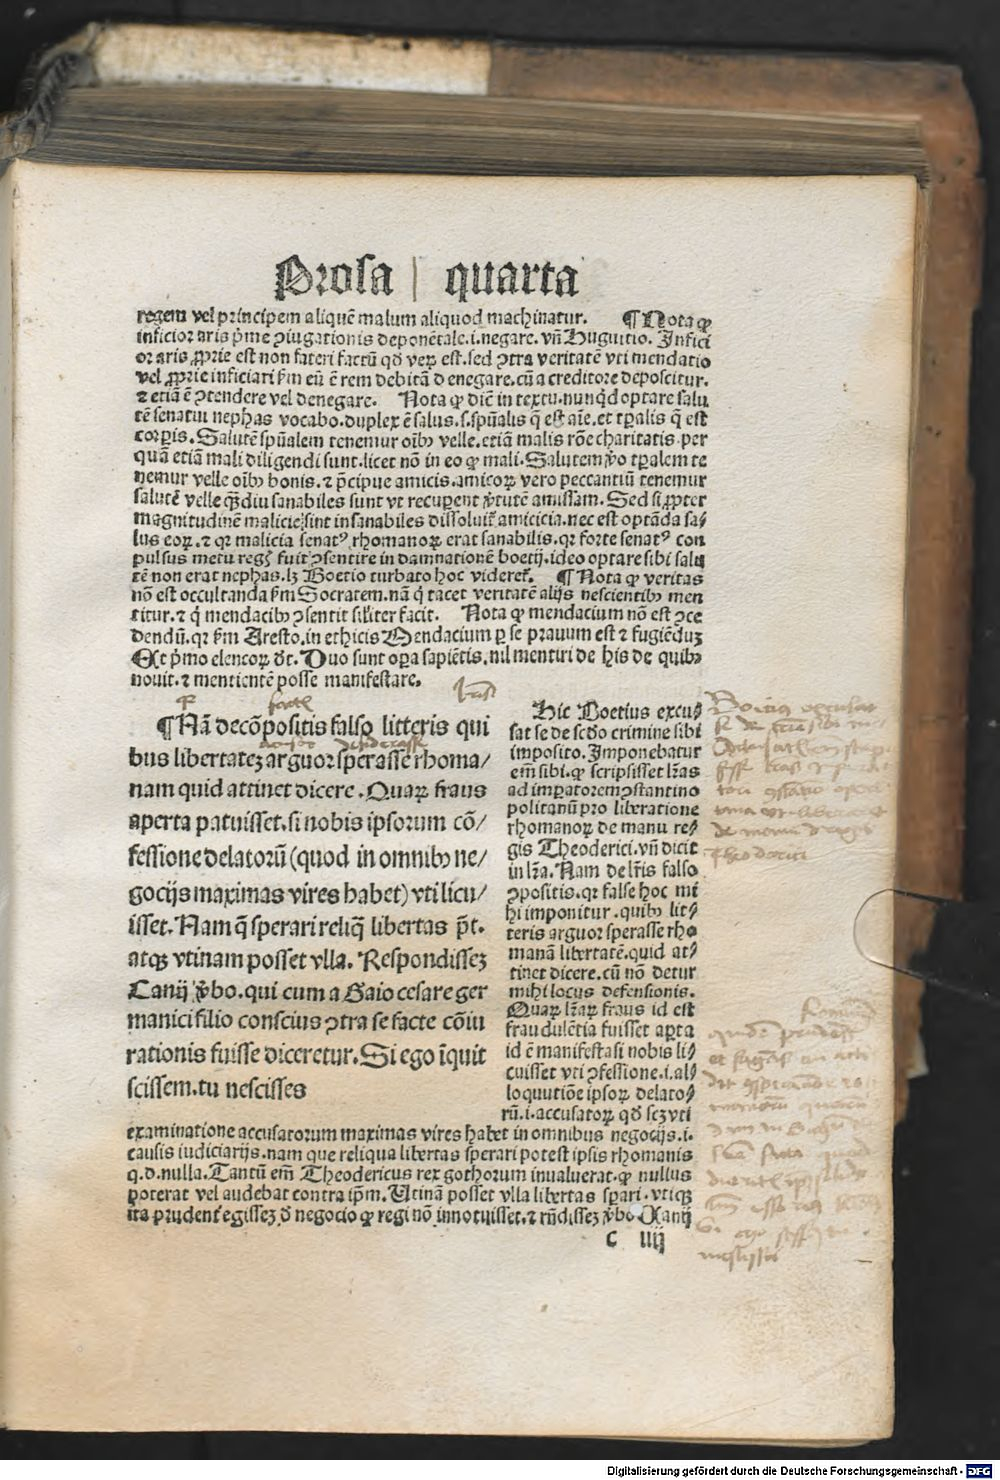 Prosa quarta
regem vel principem aliquē malum aliquod machinatur. ¶ Nota ꝙ
inficior aris p̄me ꝯiugationis deponētale.i.negare. vn̄ Huguitio. Infici
or aris ꝓprie est non fateri factū qđ veꝝ est.sed ꝯtra veritatē vti mendatio
vel ꝓprie inficiari ẜm eū ē rem debitā denegare.cū a creditore deposcitur.
⁊ etiā ē ꝯtendere vel denegare. Nota ꝙ dicit̄ in textu.nunq̇d optare salu
tē senatui nephas vocabo.duplex ē salus.s.spūalis q̄ est aīe.et tp̄alis q̄ est
corpis. Salutē spūalem tenemur oībꝫ velle.etiā malis rōe charitatis.per
quā etiā mali diligendi sunt.licet nō in eo ꝙ mali. Salutem v̄o tp̄alem te
nemur velle oībꝫ bonis.⁊ p̄cipue amicis.amicoꝝ vero peccantiū tenemur
salutē velle qm̄diu sanabiles sunt vt recuperent v̄tutē amissam. Sed si ꝓpter
magnitudinē malicie sint insanabiles dissoluit̄ amicicia.nec est optāda sa⸗
lus eoꝝ.⁊ qꝛ malicia senatꝰ rhomanoꝝ erat sanabilis.qꝛ forte senatꝰ con
pulsus metu regꝭ fuit ꝯsentire in damnationē boetij.ideo optare sibi salu
tē non erat nephas.lꝫ Boetio turbato hoc videret̄. ¶ Nota ꝙ veritas
nō est occultanda ẜm Socratem.nā q̇ tacet veritatē alijs nescientibꝫ men
titur.⁊ q̇ mendacibꝫ ꝯsentit sīliter facit. Nota ꝙ mendacium nō est ꝯce
dendū.qꝛ ẜm Aresto.in ethicis Mendacium ꝑ se prauum est ⁊ fugiēduꝫ
Et p̄mo elencoꝝ dr̄. Duo sunt opa sapiētis.nil mentiri de his de quibꝫ
nouit.⁊ mentientē posse manifestare.
¶ Nā de cōpositis falso litteris qui
bus libertateꝫ arguor sperasse rhoma⸗
nam quid attinet dicere. Quaꝝ fraus
aperta patuisset.si nobis ipsorum cō⸗
fessione delatorū (quod in omnibꝫ ne⸗
gocijs maximas vires habet) vti licu⸗
isset. Nam q̄ sperari reliq̄ libertas p̄t.
atqꝫ vtinam posset vlla. Respondisseꝫ
Canij v̄bo.qui cum a Gaio cesare ger
manici filio conscius ꝯtra se facte cōiu
rationis fuisse diceretur. Si ego īquit
scissem.tu nescisses
Hic Boetius excu⸗
sat se de scd̄o crimine sibi
imposito. Imponebatur
em̄ sibi.ꝙ scripsisset lr̄as
ad impatorem ꝯstantino
politanū pro liberatione
rhomanoꝝ de manu re⸗
gis Theoderici.vn̄ dicit
in lr̄a. Nam de lr̄is falso
ꝯpositis.qꝛ false hoc mi
hi imponitur.quibꝫ lit⸗
teris arguor sperasse rho
manā libertatē.quid at⸗
tinet dicere.cū nō detur
mihi locus defensionis.
Quaꝝ lr̄aꝝ fraus id est
fraudulētia fuisset apta
id ē manifesta si nobis li⸗
cuisset vti ꝯfessione.i.al⸗
loquutiōe ipsoꝝ delato⸗
rū.i.accusatoꝝ qđ scꝫ vti
examinatione accusatorum maximas vires habet in omnibus negocijs.i.
causis iudiciarijs.nam que reliqua libertas sperari potest ipsis rhomanis
q.d.nulla. Tantū em̄ Theodericus rex gothorum inualuerat.ꝙ nullus
poterat vel audebat contra ip̄m. Utinā posset vlla libertas spari.vtiqꝫ
ita prudent̄ egisseꝫ de negocio ꝙ regi nō innotuisset.⁊ rn̄disseꝫ v̄bo Canij
c iiij
Digitalisierung gefördert durch die Deutsche Forschungsgemeinschaft - DFG